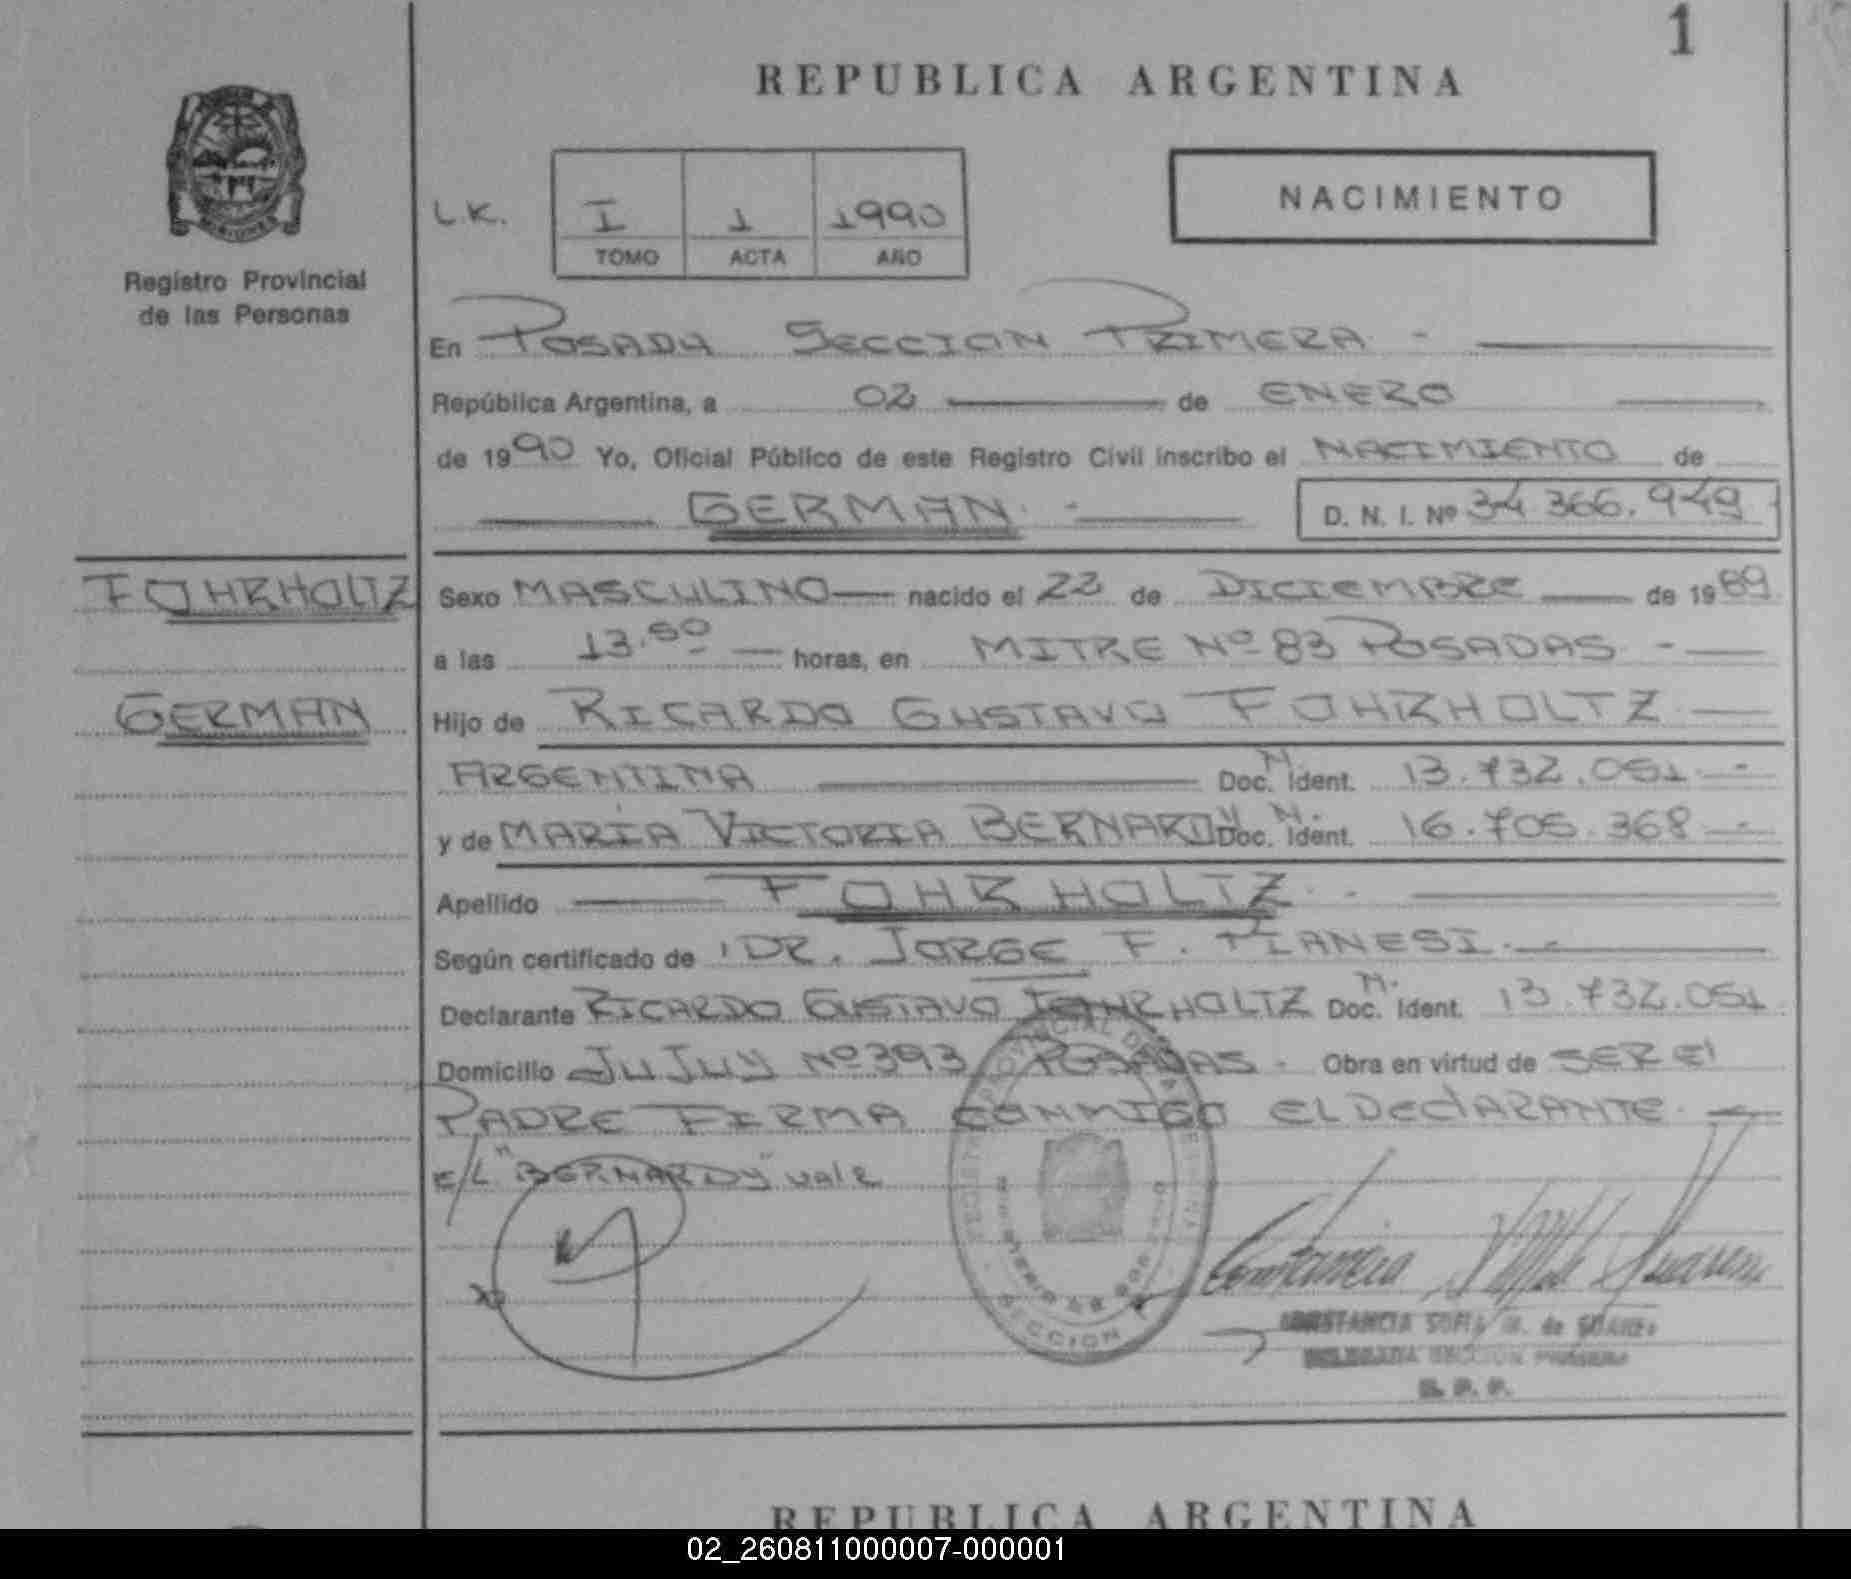 1
REPUBLICA ARGENTINA
LK. I 1 1990
TOMO ACTA AÑO
NACIMIENTO
MISIONES
Registro Provincial
de las Personas
En POSADA SECCION PRIMERA -
República Argentina, a 02 de ENERO
de 1990 Yo, Oficial Público de este Registro Civil inscribo el NACIMIENTO de
GERMAN. - D. N. I. Nº 34 366.949
FOHRHOLTZ
GERMAN
Sexo MASCULINO nacido el 22 de DICIEMBRE de 1989
a las 13.50 horas, en MITRE Nº 83 POSADAS. -
Hijo de RICARDO GUSTAVO FOHRHOLTZ
ARGENTINA Doc. M. Ident. 13.732.051 -
y de MARIA VICTORIA BERNARDY Doc. M. Ident. 16.705.368 -
Apellido FOHRHOLTZ. -
Según certificado de DR. JORGE F. PIANESI. -
Declarante RICARDO GUSTAVO FOHRHOLTZ Doc. M. Ident. 13.732.051
Domicilio JUJUY Nº 393 POSADAS - Obra en virtud de SER El
PADRE FIRMA CONMIGO EL DEClARANTE. -
E/L "BERNARDY" vale
SECCION
CONSTANCIA SOFIA M. de SUAREZ
DELEGADA SECCION PRIMERA
R. P. P.
REPUBLICA ARGENTINA
02_260811000007-000001